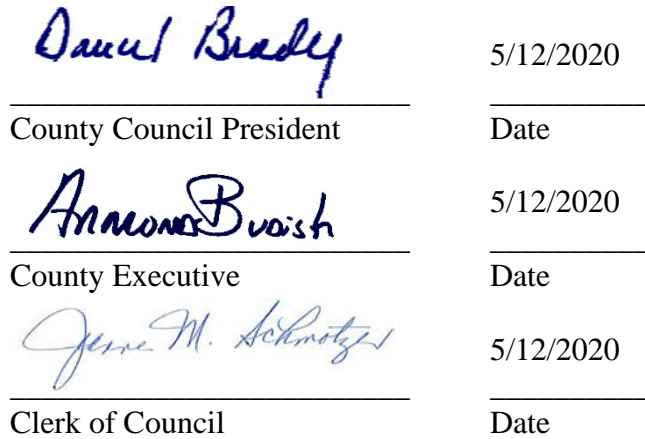 Daniel Brady 5/12/2020
County Council President Date
Armond Budish 5/12/2020
County Executive Date
Jeanne M. Schmotzer 5/12/2020
Clerk of Council Date